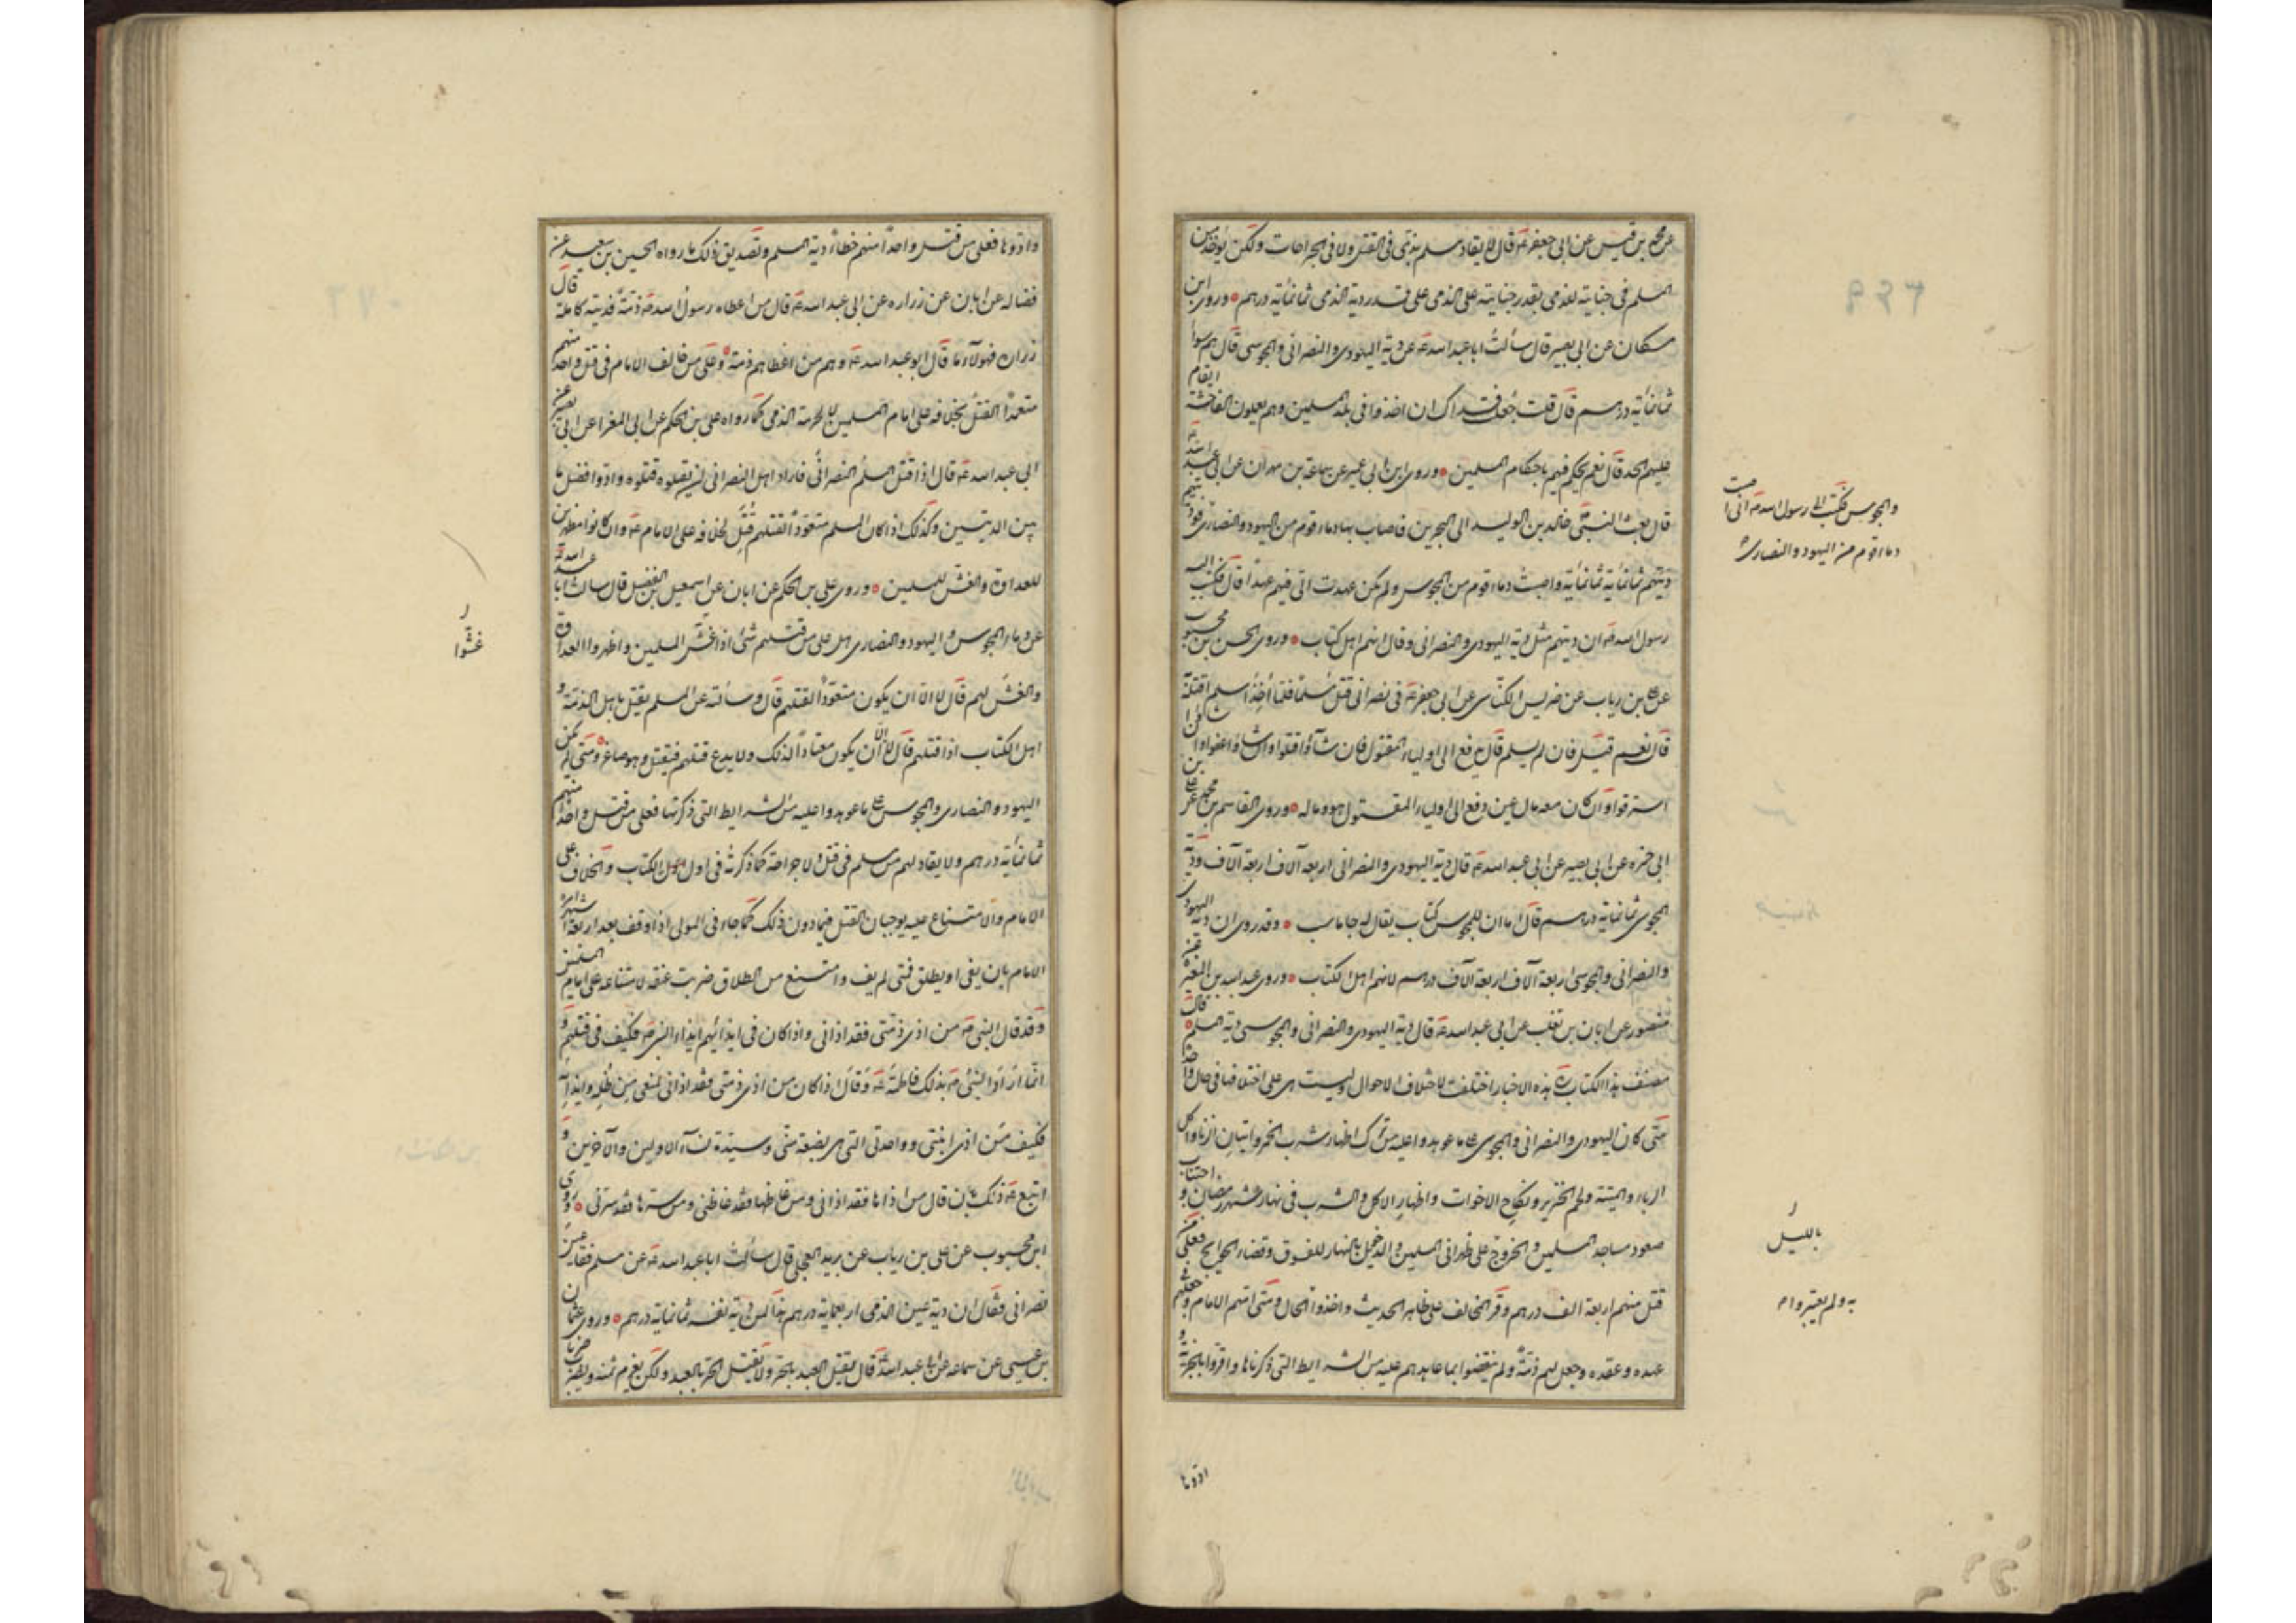 عن محمد بن قيس عن ابى جعفر ع قال لا يقاد مسلم بذمّى فى القتل ولا فى الجراحات ولكن يؤخذ من
المسلم فى جنايته للذمى بقدر جنايته على الذمى على قدر دية الذمى ثمانمائة درهم وروى ابن
مسكان عن ابى بصير قال سألت ابا عبد الله ع عن دية اليهودى والنصرانى والمجوسى قال هم سوأ
ثمانمائة درهم قال قلت جعلت فداك ان اخذوا فى بلد المسلمين وهم يعملون الفاحشة ايقام
عليهم الحد قال نعم يحكم فيهم باحكام المسلمين وروى ابن ابى عمير عن سماعة بن مهران عن ابى عبد الله ع
قال بعث النبى ص خالد بن الوليد الى البحرين فاصاب بها دماء قوم من اليهود والنصارى فوديتهم
ديتهم ثمانمائة ثمانمائة واصبت دماء قوم من المجوس ولم يكن عهدت الى فيهم عهدا قال فكتب اليه
رسول الله ص ان ديتهم مثل دية اليهودى والنصرانى وقال انهم اهل كتاب وروى الحسن بن محبوب
عن على بن رياب عن ضريس الكناسى عن ابى جعفر ع فى نصرانى قتل مسلما فلما أخذ اسلم اقتله
قال نعم قيل فان لم يسلم قال يدفع الى اولياء المقتول فان شآؤا قتلوا وان شاؤا عفوا وان شاؤا
استرقوا وان كان معه مال عين دفع الى اولياء المقتول هو وماله وروى القاسم بن محمد عن على بن
ابى حمزه عن ابى بصير عن ابى عبد الله ع قال دية اليهودى والنصرانى اربعة آلاف اربعة آلاف ودية
المجوسى ثمانمائة درهم قال اما ان للمجوس كتاب يقال له جاماسب وقد روى ان دية اليهودى
والنصرانى والمجوسى اربعة آلاف اربعة آلاف درهم لانهم اهل الكتاب وروى عبد الله بن المغيرة عن
منصور عن ابان بن تغلب عن ابى عبد الله ع قال دية اليهودى والنصرانى والمجوسى دية المسلم قال
مصنف هذا الكتاب ره هذه الاخبار اختلفت لاختلاف الاحوال وليست هى على اختلافها فى حال واحدة
متى كان اليهودى والنصرانى والمجوسى على ما عوهدوا عليه من ترك اظهار شرب الخمر واتيان الزنا واكل
الربا والميتة ولحم الخنزير ونكاح الاخوات واظهار الاكل والشرب فى نهار شهر رمضان واجتناب
صعود مساجد المسلمين والخروج على ظهرانى المسلمين والدخول بالنهار للسوق وقضاء الحوايج فعلى من
قتل منهم اربعة الف درهم ومر المخالف على ظاهر الحديث واخذوا الحال ومتى امنهم الامام وجعلهم فى
عهده وعقده وجعل لهم ذمة ولم ينقضوا ما عاهدهم عليه من الشرايط التى ذكرناها واقروا بالجزية و
ادّوها
والمجوس فكتب الى رسول الله ص انى اصبت
دماء قوم من اليهود والنصارى
بالليل
به ولم يعتبروا
وادّوها فعلى من قتل واحدا منهم خطاء دية المسلم وتصديق ذلك ما رواه الحسين بن سعيد عن
فضاله عن ابان عن زراره عن ابى عبد الله ع قال من اعطاه رسول الله ص ذمّة فديته كاملة قال
زراره فهولآء ما قال ابو عبد الله ع وهم من اعطاهم ذمة وعلى من خالف الامام فى قتل واحد منهم
متعمدا القتل بخلافه على امام المسلمين لا لحرمة الذمى كما رواه على بن الحكم عن ابى المغرا عن ابى بصير عن
ابى عبد الله ع قال اذا قتل المسلم النصرانى فاراد اهل النصرانى ان يقتلوه قتلوه وادوا فضل ما
بين الديتين وكذلك اذا كان المسلم متعوّدا لقتلهم قتل لخلافه على الامام ع وان كانوا مظهرين
للعداوة والغش للمسلمين وروى على بن الحكم عن ابان عن اسمعيل بن الفضل قال سالت ابا عبد الله ع
عن دماء المجوس واليهود والنصارى هل على من قتلهم شئ اذا غش المسلمين واظهروا العداوة
والغش لهم قال لا الّا ان يكون متعوّدا لقتلهم قال وسألته عن المسلم يقتل باهل الذمّة و
اهل الكتاب اذا قتلهم قال لا الّا ان يكون معتادا لذلك ولا يدع قتلهم فيقتل وهو صاغر ومتى لم يكن
اليهود والنصارى والمجوس على ما عوهدوا عليه من الشرايط التى ذكرتها فعلى من قتل واحدا منهم
ثمانمائة درهم ولا يقاد لهم من مسلم فى قتل ولا جراحة كما ذكرته فى اول الكتاب والخلاف على
الامام والامتناع عليه يوجبان القتل فيما دون ذلك كما جاء فى المولى اذا وقف بعد اربعة اشهر
الامام بان يفى او يطلق فمتى لم يف وامتنع من الطلاق ضربت عنقه لامتناعه على امام المسلمين
وقد قال النبى ص من اذى ذمّتى فقد اذانى واذا كان فى ايذائهم ايذاء النبى ص فكيف فى قتلهم و
انما اراد النبى ص بذلك فاطمة ع وقال اذا كان من اذى ذمتى فقد اذانى لمنعى من ظلمه وايذآئه
فكيف من اذى ابنتى وواحدتى التى هى بضعة منّى وسيّدة نسآء الاولين والآخرين و
اتبع ع ذلك بان قال من اذاها فقد اذانى ومن غاظها فقد غاظنى ومن سرها فقد سرّنى وروى
ابن محبوب عن على بن رياب عن بريد العجلى قال سألت ابا عبد الله ع عن مسلم فقأ عين
نصرانى فقال ان دية عين الذمى اربعماية درهم هذا لمن دية نفسه ثمانماية درهم وروى عثمان
بن عيسى عن سماعه عن ابى عبد الله ع قال يقتل العبد بالحر ولا يقتل الحر بالعبد ولكن يغرم ثمنه ويضرب ضربا
غشّوا